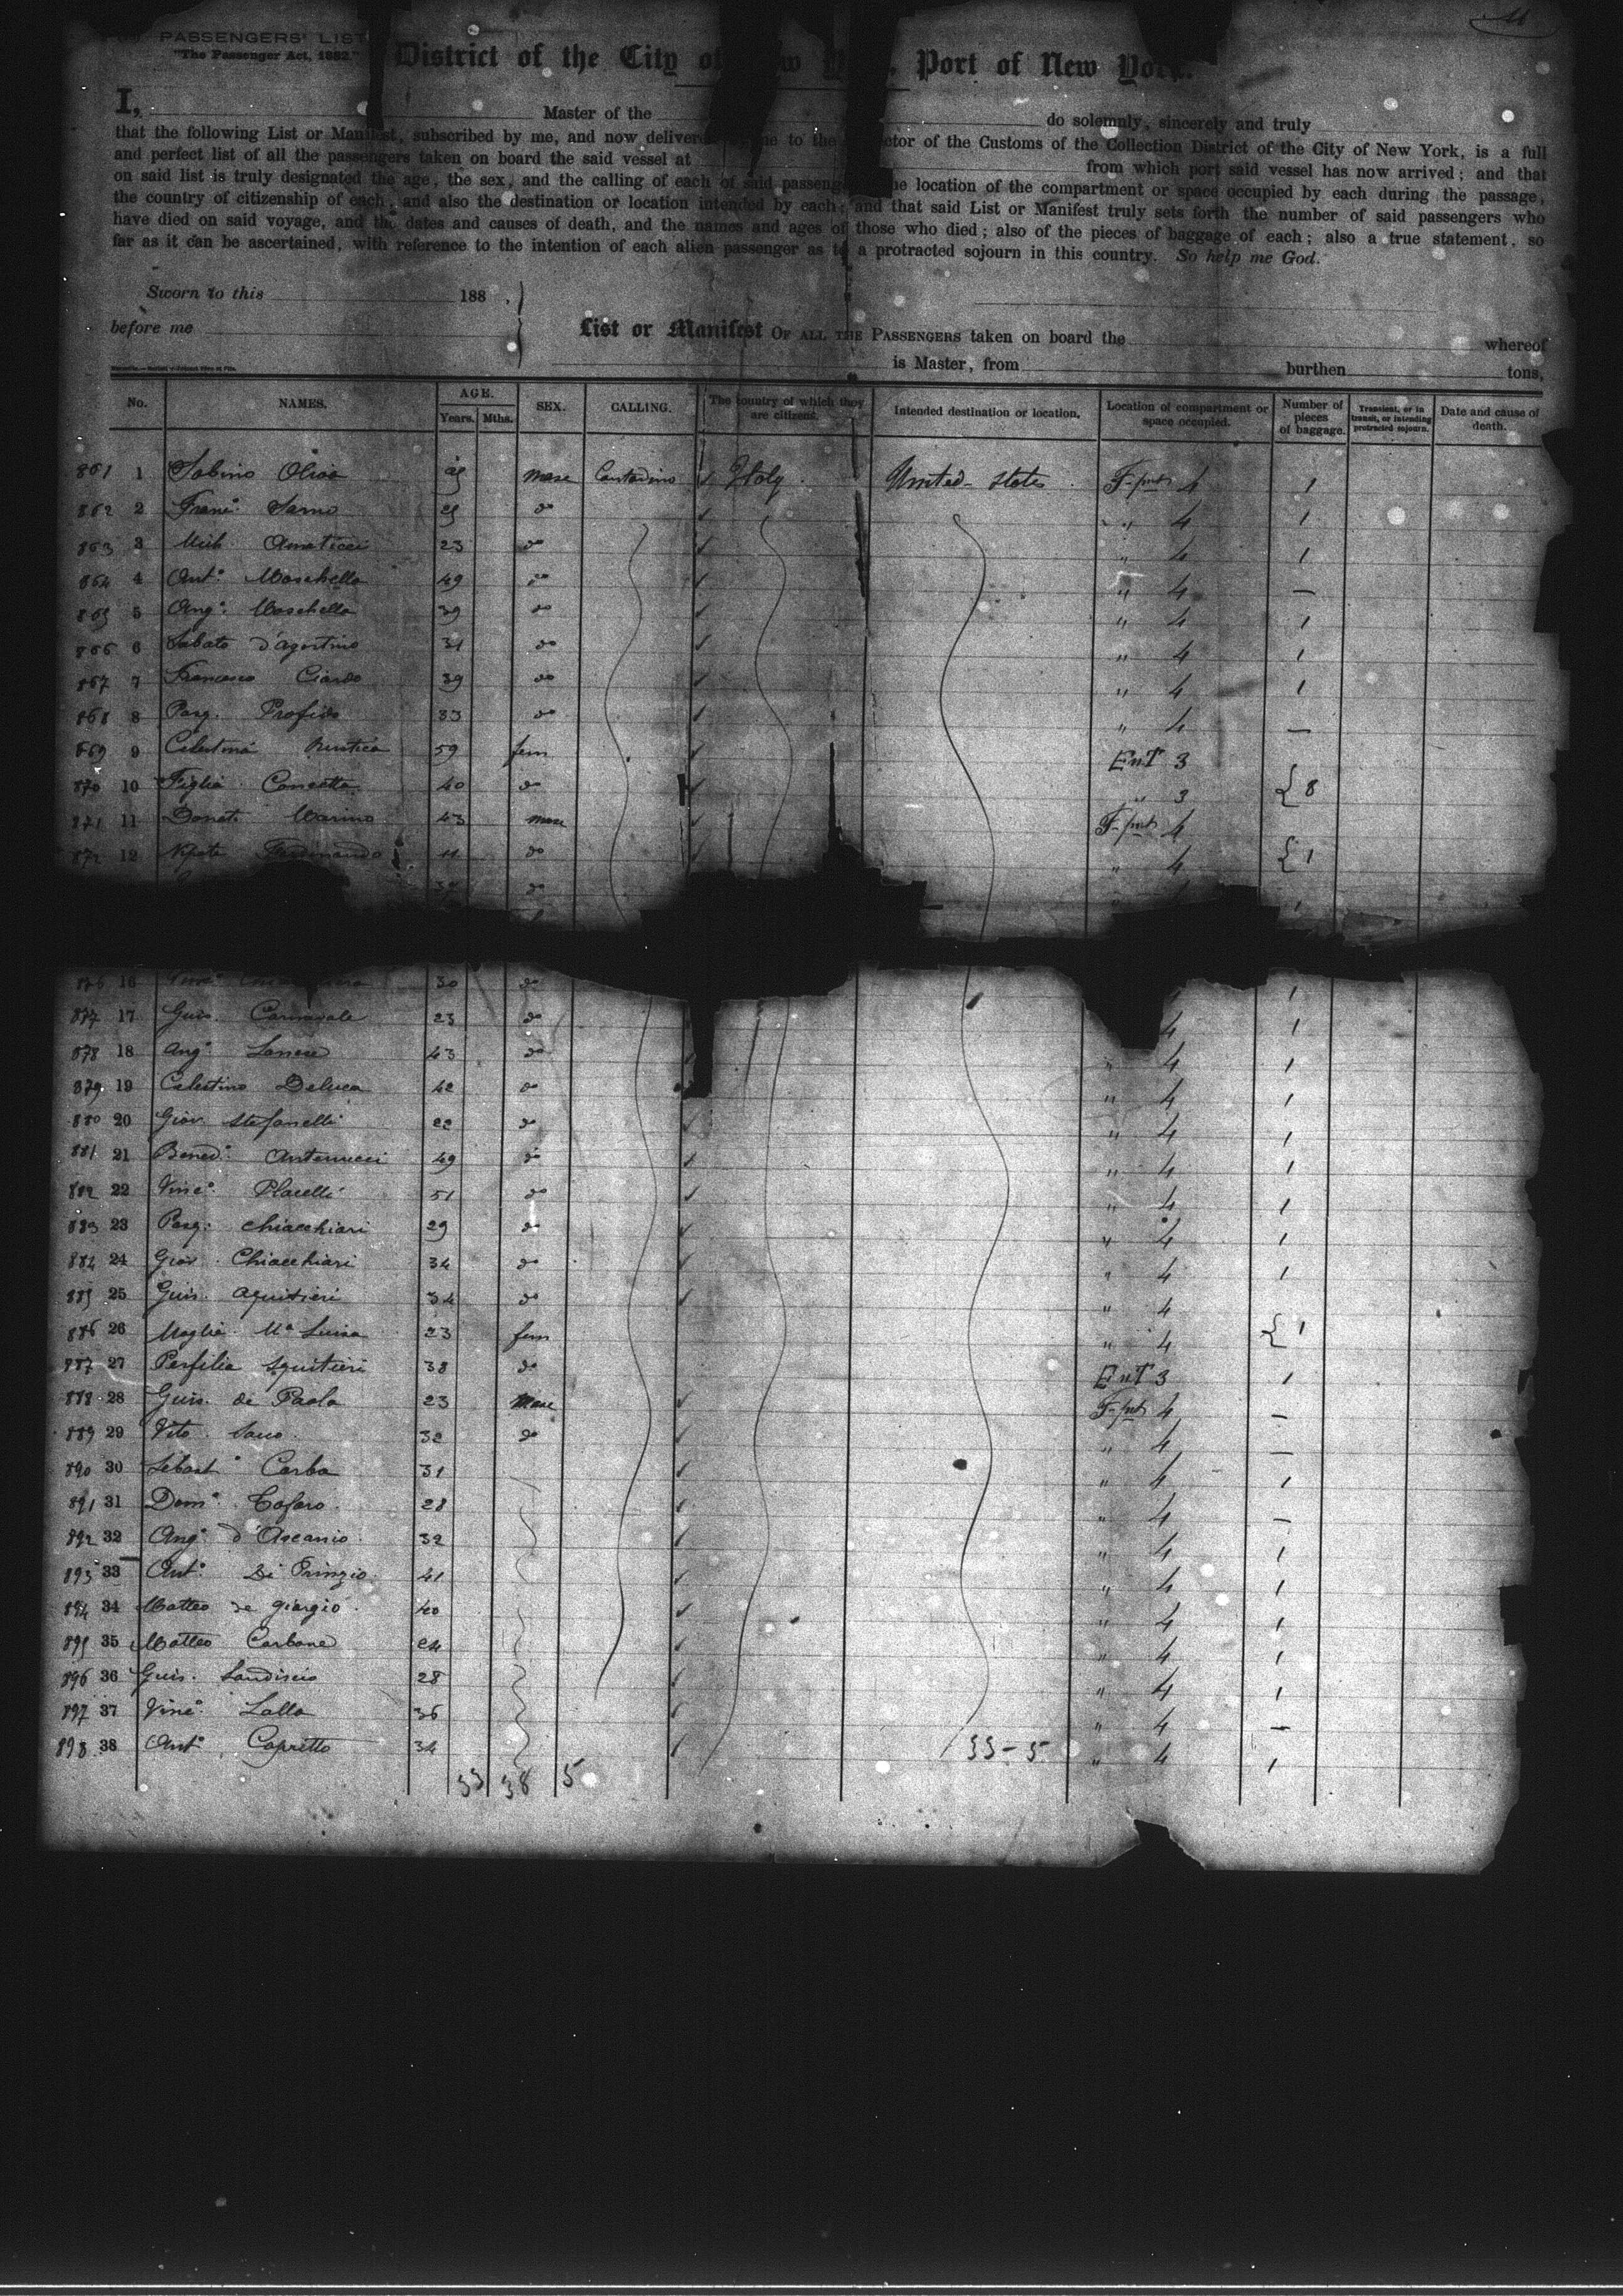 PASSENGERS' LIST
"The Passenger Act, 1882."
District of the City of New Port of New York.
I, Master of the do solemnly, sincerely and truly
that the following List or Manifest, subscribed by me, and now delivered me to the ctor of the Customs of the Collection District of the City of New York, is a full
and perfect list of all the passengers taken on board the said vessel at from which port said vessel has now arrived; and that
on said list is truly designated the age, the sex, and the calling of each of said passeng he location of the compartment or space occupied by each during the passage,
the country of citizenship of each, and also the destination or location intended by each; and that said List or Manifest truly sets forth the number of said passengers who
have died on said voyage, and the dates and causes of death, and the names and ages of those who died; also of the pieces of baggage of each; also a true statement, so
far as it can be ascertained, with reference to the intention of each alien passenger as to a protracted sojourn in this country. So help me God.
Sworn to this 188 .
before me
List or Manifest OF ALL THE PASSENGERS taken on board the whereof
is Master, from burthen tons,
No. NAMES. AGE. Years. Mths. SEX. CALLING. The country of which they are citizens. Intended destination or location. Location of compartment or space occupied. Number of pieces of baggage. Transient, or in transit, or intending protracted sojourn. Date and cause of death.
861 1 Sabino Oliva masc Contadino Italy United-states 4 1
862 2 Franc° Sarno do " 4 1
863 3 Mich 23 do " 4 1
864 4 Ant° Moschella 49 do " 4 —
865 5 Ang° Moschella 39 do " 4 1
866 6 Sabato d'agostino 31 do " 4 1
867 7 Francesco Ciardo 39 do " 4 1
868 8 Pasq. Profido 33 do " 4 —
869 9 Celestina Rustica 59 fem Ent 3
870 10 Figlia Concetta 40 do " 3 { 8
871 11 Donato Marino 43 masc 4
872 12 Nipote Ferdinando 11 do " 4 { 1
do
876 16 30 do 1
877 17 Guis. Carnavale 23 do 4 1
878 18 Ang° Lanese 43 do " 4 1
879 19 Celestino Deluca 42 do " 4 1
880 20 Giov. Stefanelli 22 do " 4 1
881 21 Bened° Antenucci 49 do " 4 1
882 22 Vinc° Placelli 51 do " 4 1
883 23 Pasq. Chiacchiari 29 do " 4 1
884 24 Giov. Chiacchiari 34 do " 4 1
885 25 Guis. aquitieri 34 do " 4
886 26 Moglie Ma Luisa 23 fem " 4 { 1
887 27 Perfilia Squitieri 38 do Ent 3 1
888 28 Guis. de Paola 23 masc 4 —
889 29 Vito Sacco 32 do " 4 —
890 30 Sebast° Carba 31 " 4 1
891 31 Dom° Cafaro 28 " 4 —
892 32 Ang° d'Ascanio 32 " 4 1
893 33 Ant° Di Prinzio 41 " 4 1
894 34 Matteo de giorgio 40 " 4 1
895 35 Matteo Carbone 24 " 4 1
896 36 Guis. Landisio 28 " 4 1
897 37 Vinc° Lalla 36 " 4 —
898 38 Ant° Capretto 34 33-5 " 4 1
33 38 5